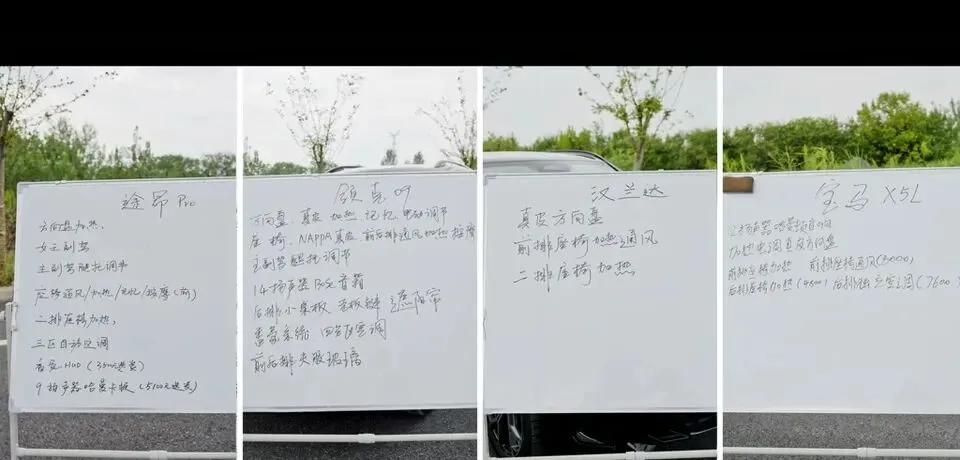 途昂Pro
方向盘加热,
女王副驾
主副驾腿托调节
座椅通风/加热/记忆/按摩(前)
二排座椅加热,
三区自动空调
香氛、HUD(3500元选装)
9扬声器哈曼卡顿(5100元选装)
领克09
方向盘、真皮 加热 记忆 电动调节
座椅、NAPPA真皮 前后排通风加热按摩
主副驾腿托调节
14扬声器BOSE音箱
后排小桌板 老板键 遮阳帘
香氛系统 四区空调
前后排夹胶玻璃
汉兰达
真皮方向盘
前排座椅加热通风
二排座椅加热
宝马 X5L
扬声器哈曼卡顿音响
加热电调真皮方向盘
前排座椅加热 前排座椅通风
后排座椅加热(4600) 后排独立空调(7600